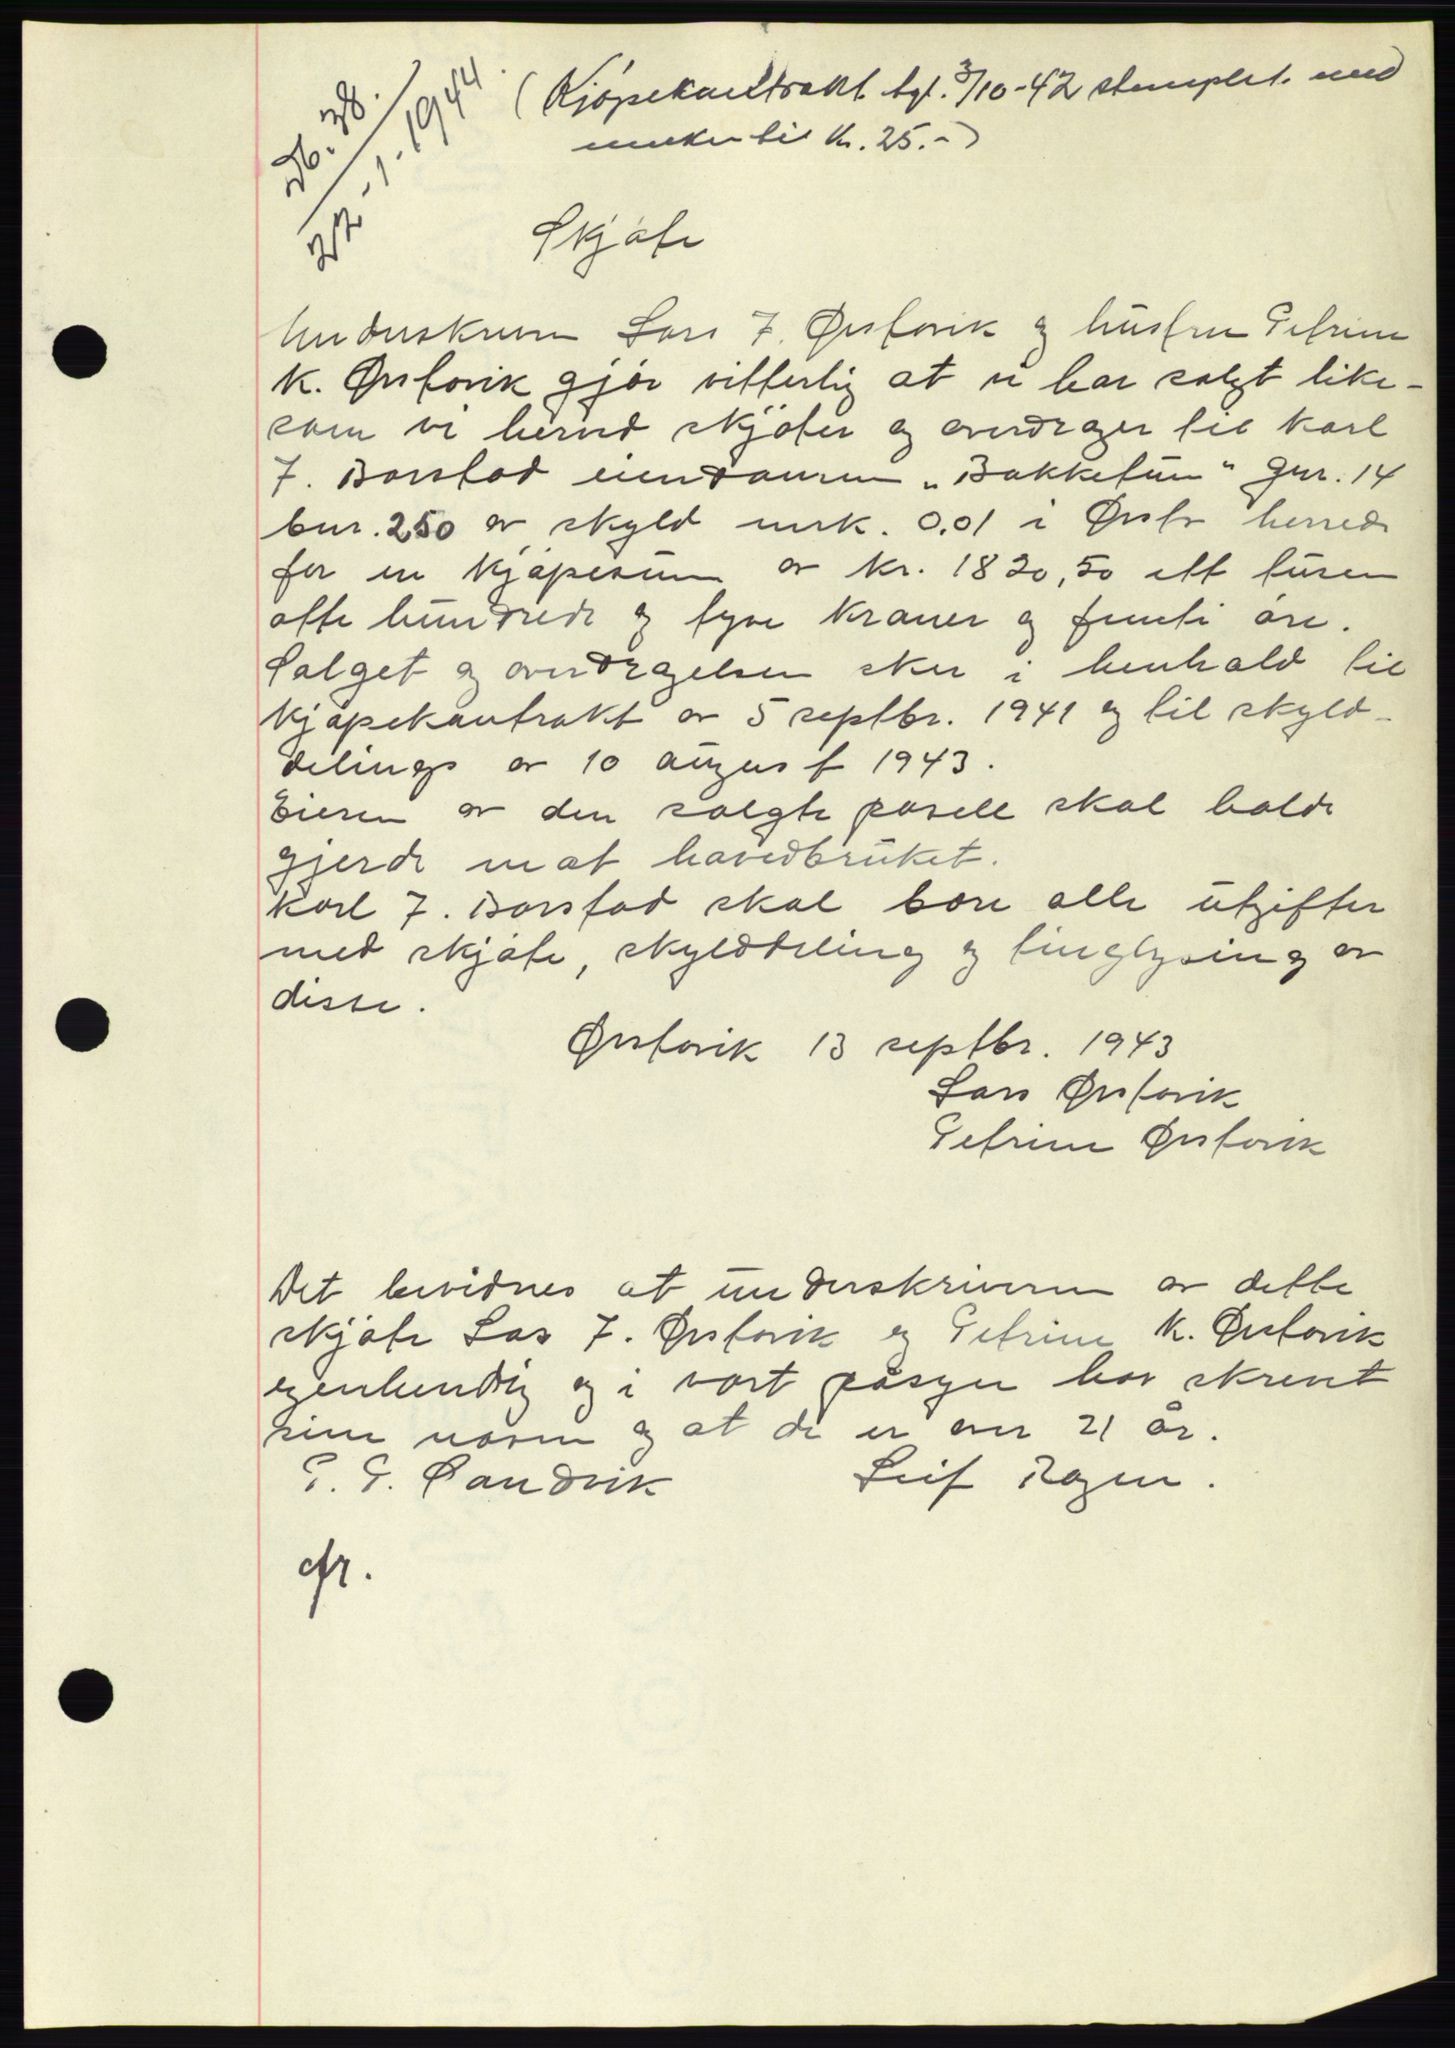 Db. 38.
22-1-1944.
(Kjøpekontrakt tgl. 3/10-42 stemplet. med
merker til kr. 25.-)
Skjøte
Underskreven Lars J. Ørstavik og hustru Petrine
K. Ørstavik gjør vitterlig at vi har solgt like-
som vi herved skjøter og overdrager til Karl
J. Barstad eiendommen "Bakketun" gnr. 14
bnr. 250 av skyld mrk. 0,01 i Ørsta herred
for en kjøpesum av kr. 1820,50 ett tusen
otte hundrede og tyve kroner og femti øre.
Salget og overdragelsen sker i henhold til
kjøpekontrakt av 5 septbr. 1941 og til skyld-
delings av 10 august 1943.
Eieren av den solgte parsell skal holde
gjerde mot hovedbruket.
Karl J. Barstad skal bære alle utgifter
med skjøte, skylddeling og tinglysing av
disse.
Ørstavik 13 septbr. 1943
Lars Ørstavik
Petrine Ørstavik
Det bevidnes at underskriveren av dette
skjøte Las J. Ørstavik og Petrine K. Ørstavik
egenhendig og i vort påsyn har skrevet
sine navn og at de er over 21 år.
P. P. Sandvik Leif Ragen.